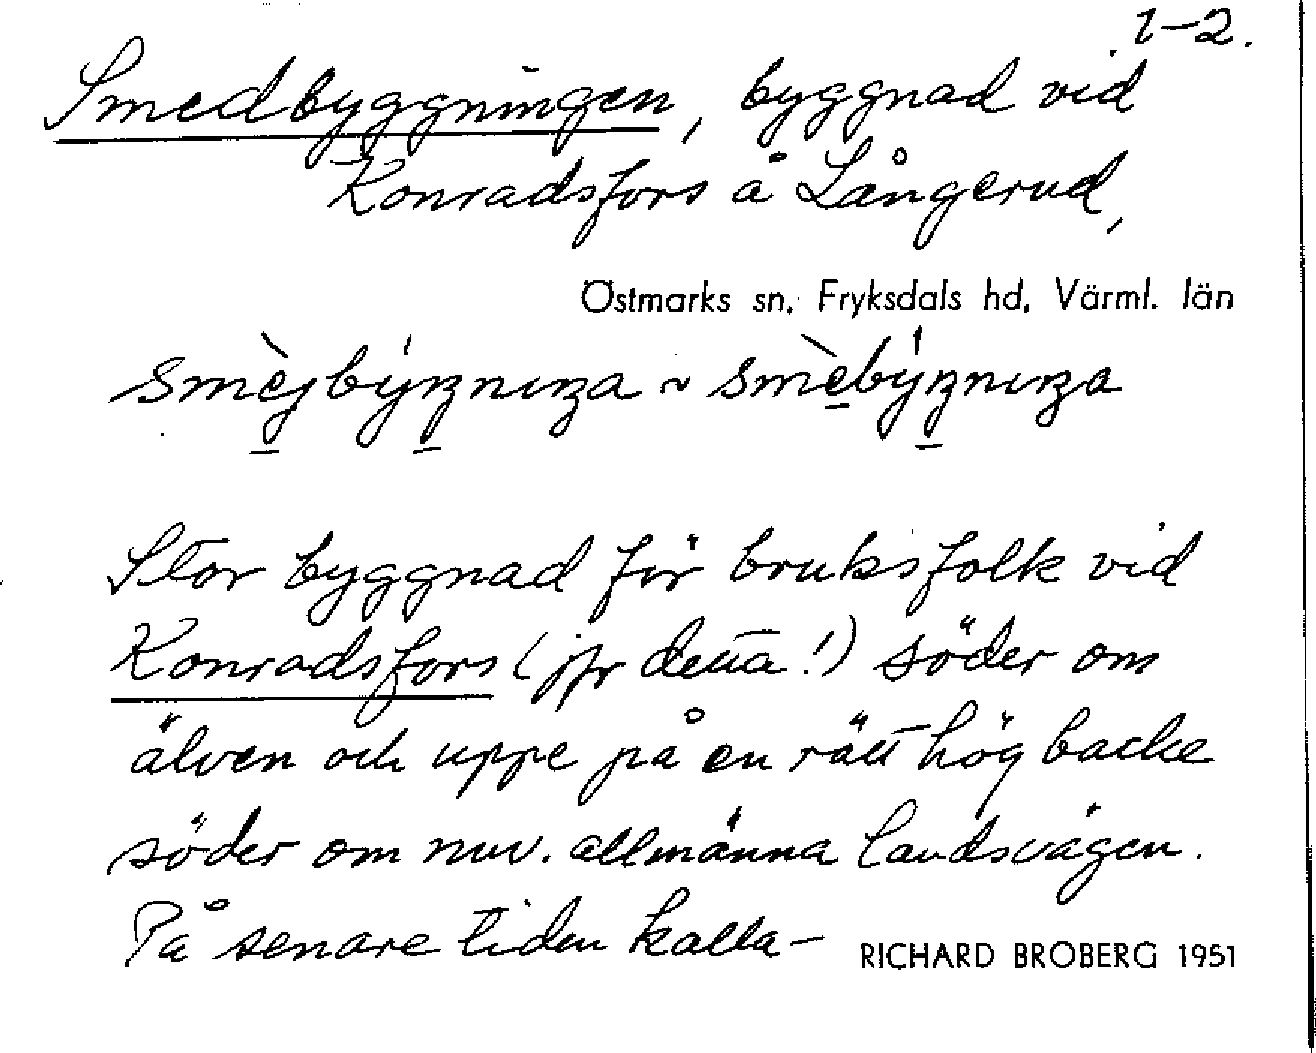 1-2.
Smedbyggningen, byggnad vid
Konradsfors å Långerud,
Östmarks sn, Fryksdals hd, Värml. län
Stor byggnad för bruksfolk vid
Konradsfors (jfr detta!) söder om
älven och uppe på en rätt hög backe
söder om nuv. allmänna landsvägen.
På senare tiden kalla-
RICHARD BROBERG 1951